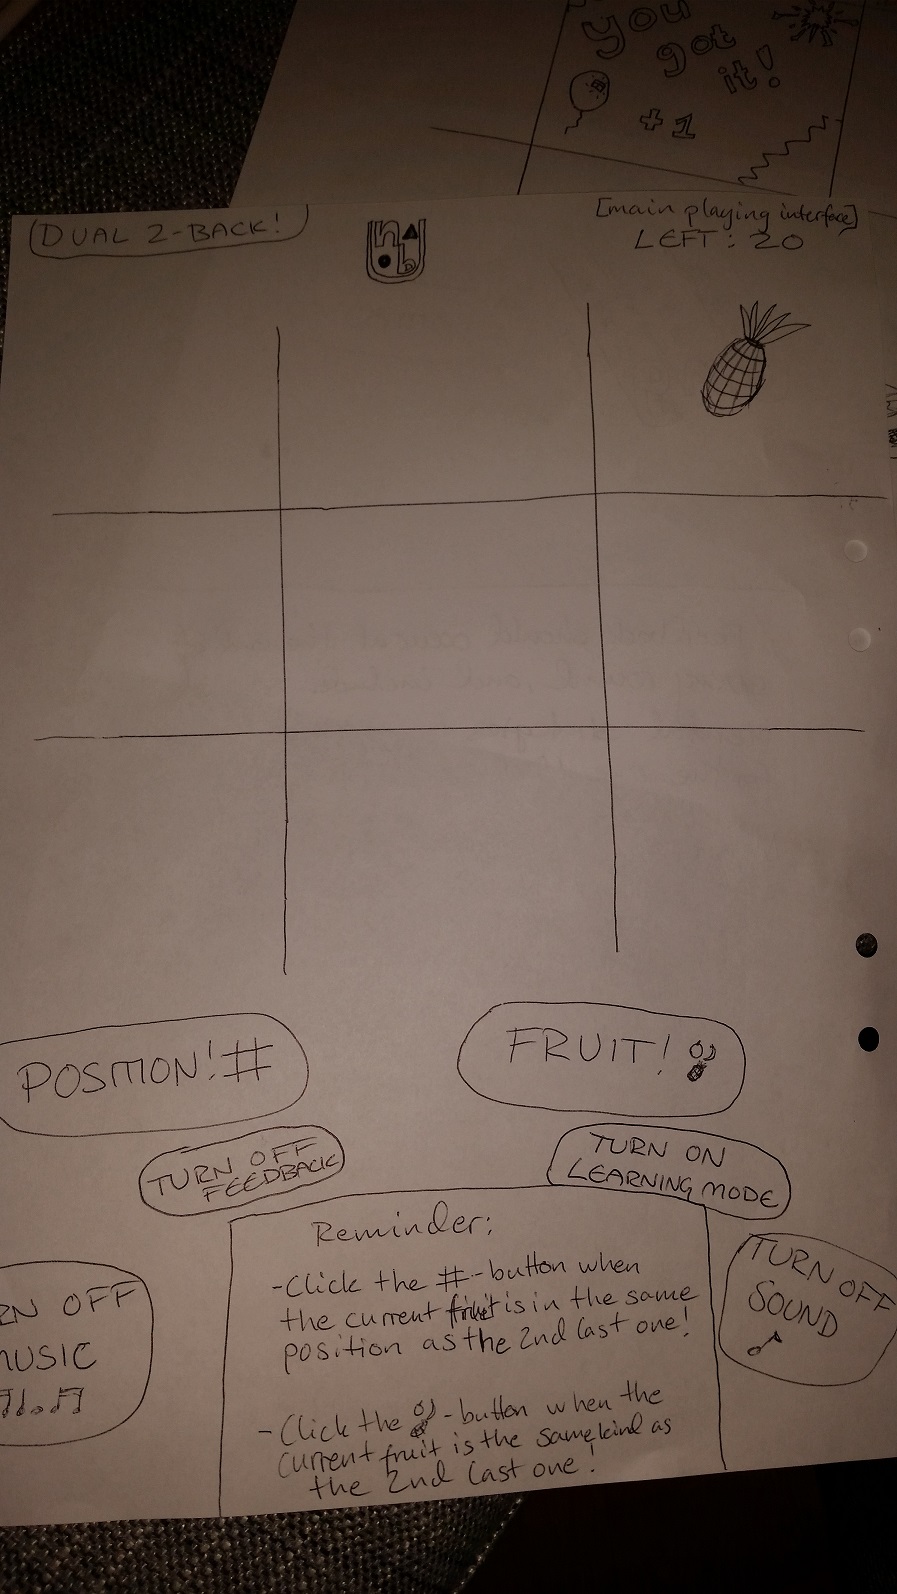 you
got
it!
+1
[main playing interface]
DUAL 2-BACK!
LEFT: 20
n
b
POSITION! #
FRUIT!
TURN OFF
FEEDBACK
TURN ON
LEARNING MODE
Reminder:
-Click the #-button when
the current fruit is in the same
position as the 2nd last one!
-Click the -button when the
current fruit is the same kind as
the 2nd last one!
RN OFF
MUSIC
TURN OFF
SOUND